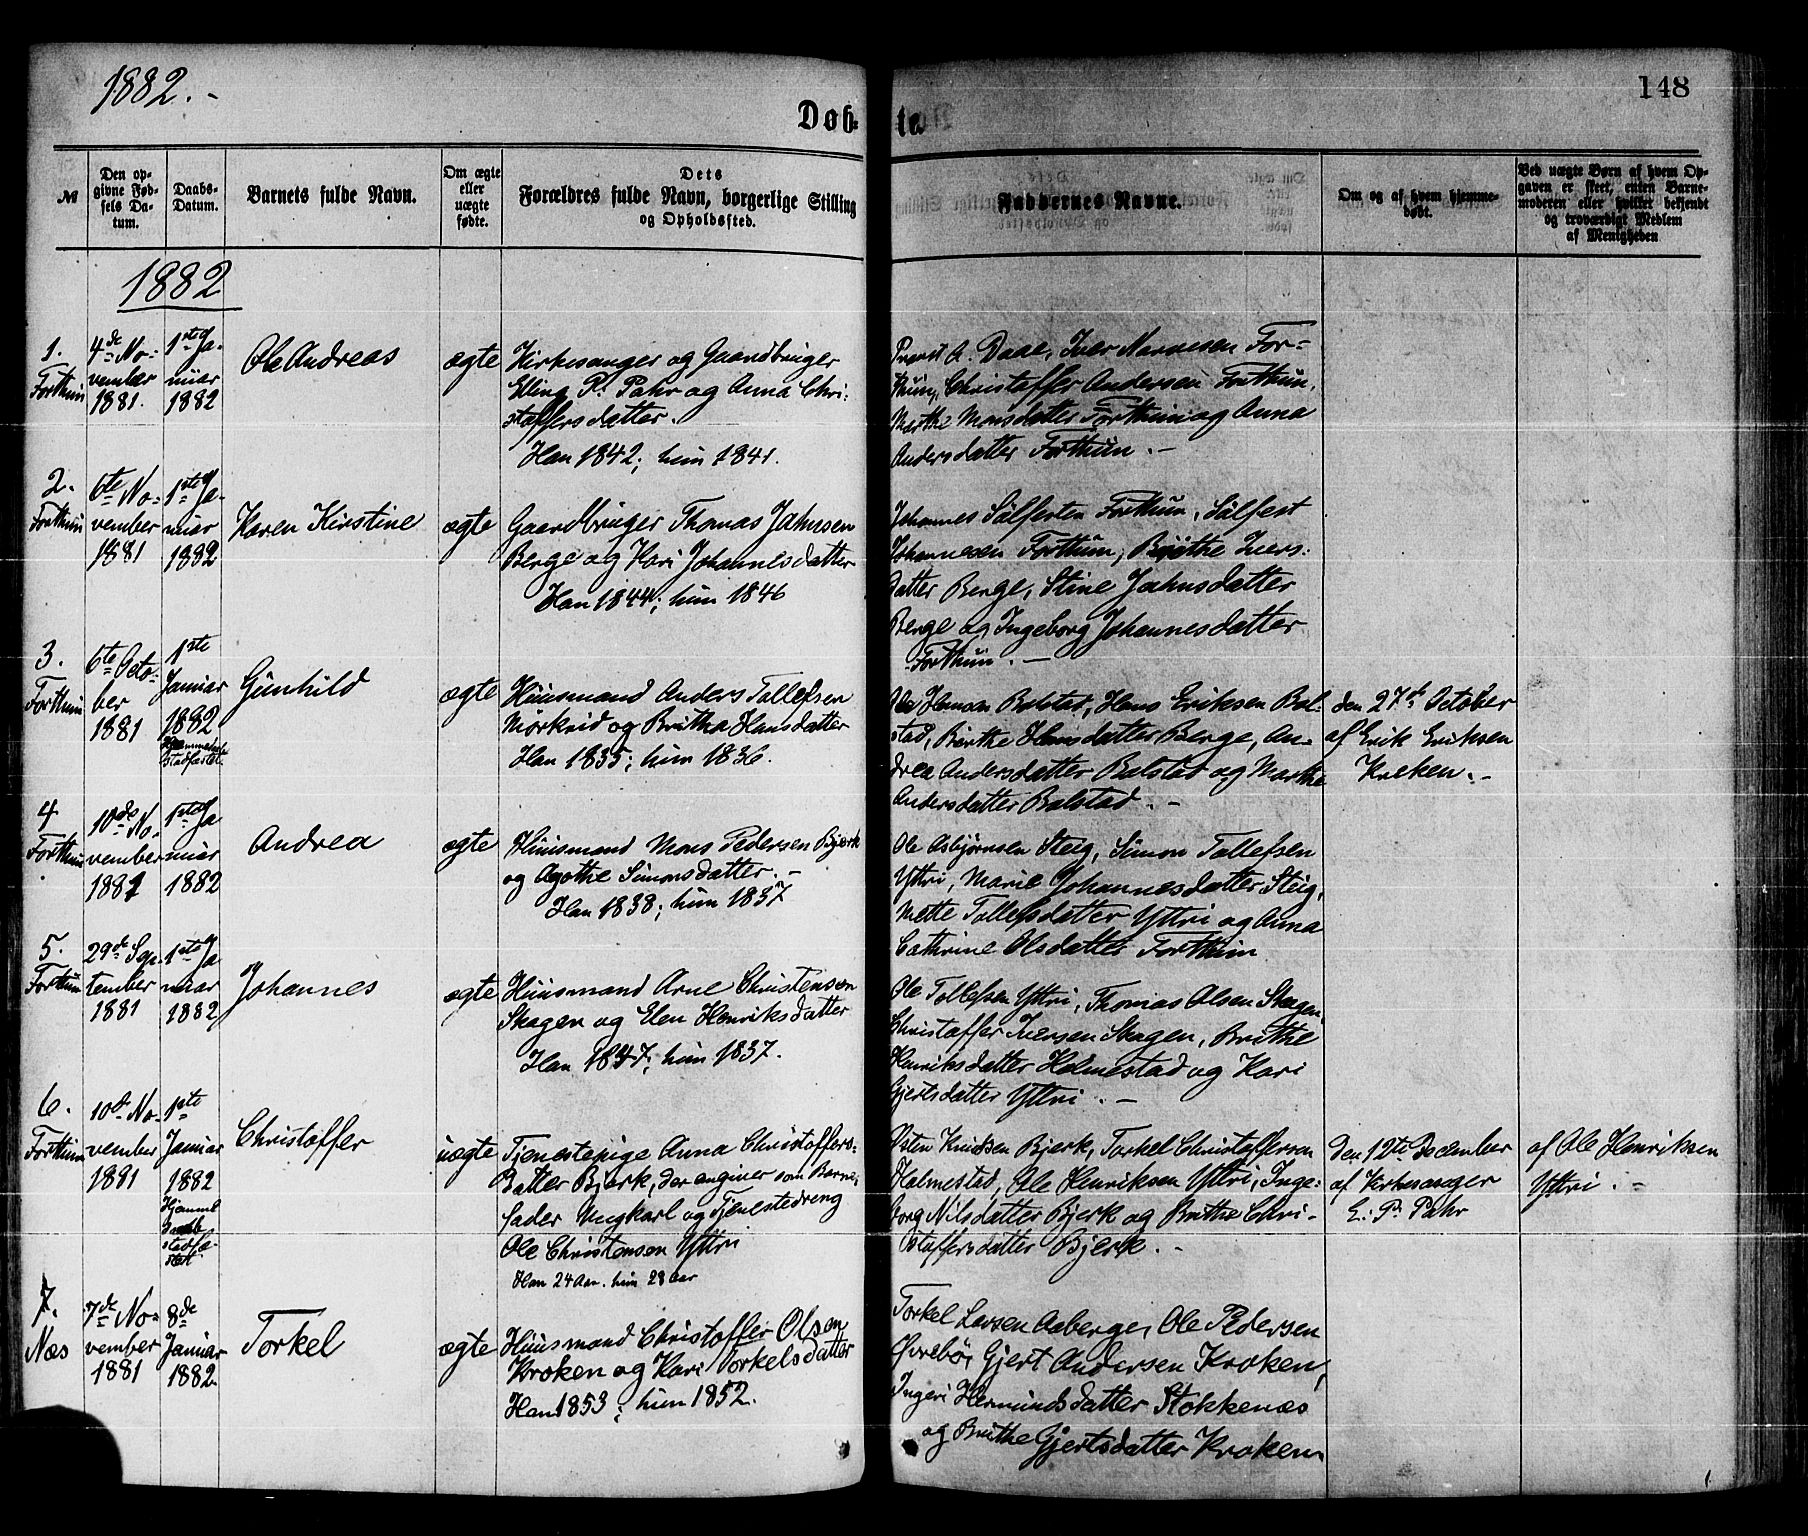 1882.-
148
Døb-
te
№
Den op-
givne Fød-
sels Da-
tum.
Daabs-
Datum.
Barnets fulde Navn.
Om ægte
eller
uægte
fødte.
Dets
Forældres fulde Navn, borgerlige Stilling
og Opholdssted.
Faddernes Navne.
Om og af hvem hjemme-
døbt.
Ved uægte Børn af hvem Op-
gaven er skeet, enten Barne-
moderen eller hvilket bekjendt
og troværdigt Medlem
af Menigheden
1882
1.
Forthun
4de No-
vember
1881.
1ste Ja-
nuar
1882
Ole Andreas
ægte
Kirkesanger og Gaardbruger
Elling P. Pahr og Anna Chri-
stoffersdatter.
Han 1842; hun 1841.
Provst A. Daae, Iver Narvesen For-
thun, Christoffer Andersen Forthun,
Marthe Monsdatter Forthun og Anna
Andersdatter Forthun. -
2.
Forthun
6te No-
vember
1881
1ste Ja-
nuar
1882
Karen Kirstine
ægte
Gaardbruger Thomas Johnsen
Berge og Kari Johannesdatter
Han 1844; hun 1846
Johannes Sølfesten Forthun, Sølfest
Johannesen Forthun, Birthe Ivers-
datter Berge, Stine Johnsdatter
Berge og Ingeborg Johannesdatter
Forthun. -
3.
Forthun
6te Octo-
ber
1881
1ste
Januar
1882
Hjemmedaab
stadfæstet.
Gunhild
ægte
Huusmand Anders Tollefsen
Mørkrid og Britha Hansdatter
Han 1835; hun 1836.
Ole Hansen Bolstad, Hans Eriksen Bol-
stad, Birthe Hansdatter Berge, An-
drea Andersdatter Bolstad og Marthe
Andersdatter Bolstad. -
den 27de October
af Erik Eriksen
Kroken. -
4
Forthun
10de No-
vember
1881
1ste Ja
nuar
1882
Andrea
ægte
Huusmand Mons Pedersen Bjørk
og Agothe Simonsdatter. -
Han 1838; hun 1837
Ole Asbjørnsen Steig, Simon Tollefsen
Yttri, Marie Johannesdatter Steig,
Mette Tollefsdatter Yttri og Anna
Cathrine Olsdatter Forthun
5.
Forthun
29de Sep-
tember
1881
1ste Ja
nuar
1882
Johannes
ægte
Huusmand Arne Christensen
Skagen og Elen Henriksdatter
Han 1847; hun 1837.
Ole Tollefsen Yttri, Thomas Olsen Skagen,
Christoffer Iversen Skagen, Brithe
Henriksdatter Holmestad og Kari
Gjertsdatter Yttri. -
6.
Forthun
10de No-
vember
1881
1ste
Januar
1882
Hjemme
daab
stadfæ-
stet
Christoffer
uægte
Tjenestepige Anna Christoffers-
datter Bjørk, der angiver som Barne-
fader Ungkarl og Tjenestedreng
Ole Christensen Yttri
Han 24 Aar. hun 28 Aar
Østen Knudsen Bjørk, Torkel Christoffersen
Holmestad, Ole Henriksen Yttri, Inge-
borg Nilsdatter Bjørk og Brithe Chri-
stoffersdatter Bjørk. -
den 12te December
af Kirkesanger
E. P. Pahr
af Ole Henriksen
Yttri. -
7.
Næs
7de No-
vember
1881
8de
Januar
1882
Torkel
ægte
Huusmand Christoffer Olsen
Kroken og Kari Torkelsdatter
Han 1853; hun 1852.
Torkel Larsen Aaberge, Ole Pedersen
Øvrebø, Gjert Andersen Kroken,
Ingeri Hermundsdatter Stokkenæs
og Brithe Gjertsdatter Kroken.